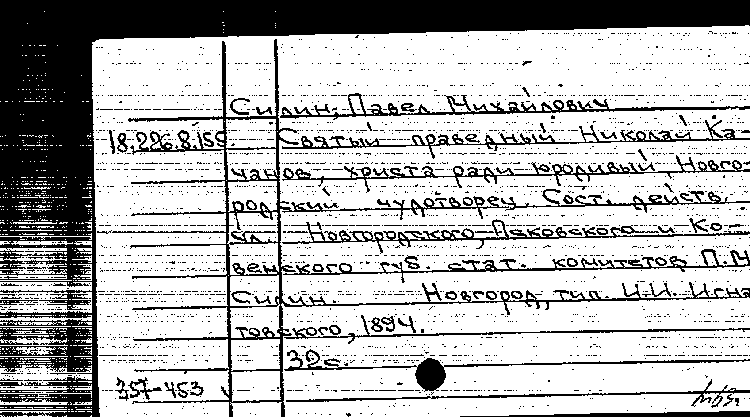 Силин, Павел Михайлович
18.226.8.155. Святый праведный Николай Ка-
чанов, христа ради юродивый, Новго-
родский чудотворец. Сост. действ.
чл. Новгородского, Псковского и Ко-
венского губ. стат. комитетов П.М.
Силин. Новгород, тип. И.И. Игна-
товского, 1894.
32с.
357-453